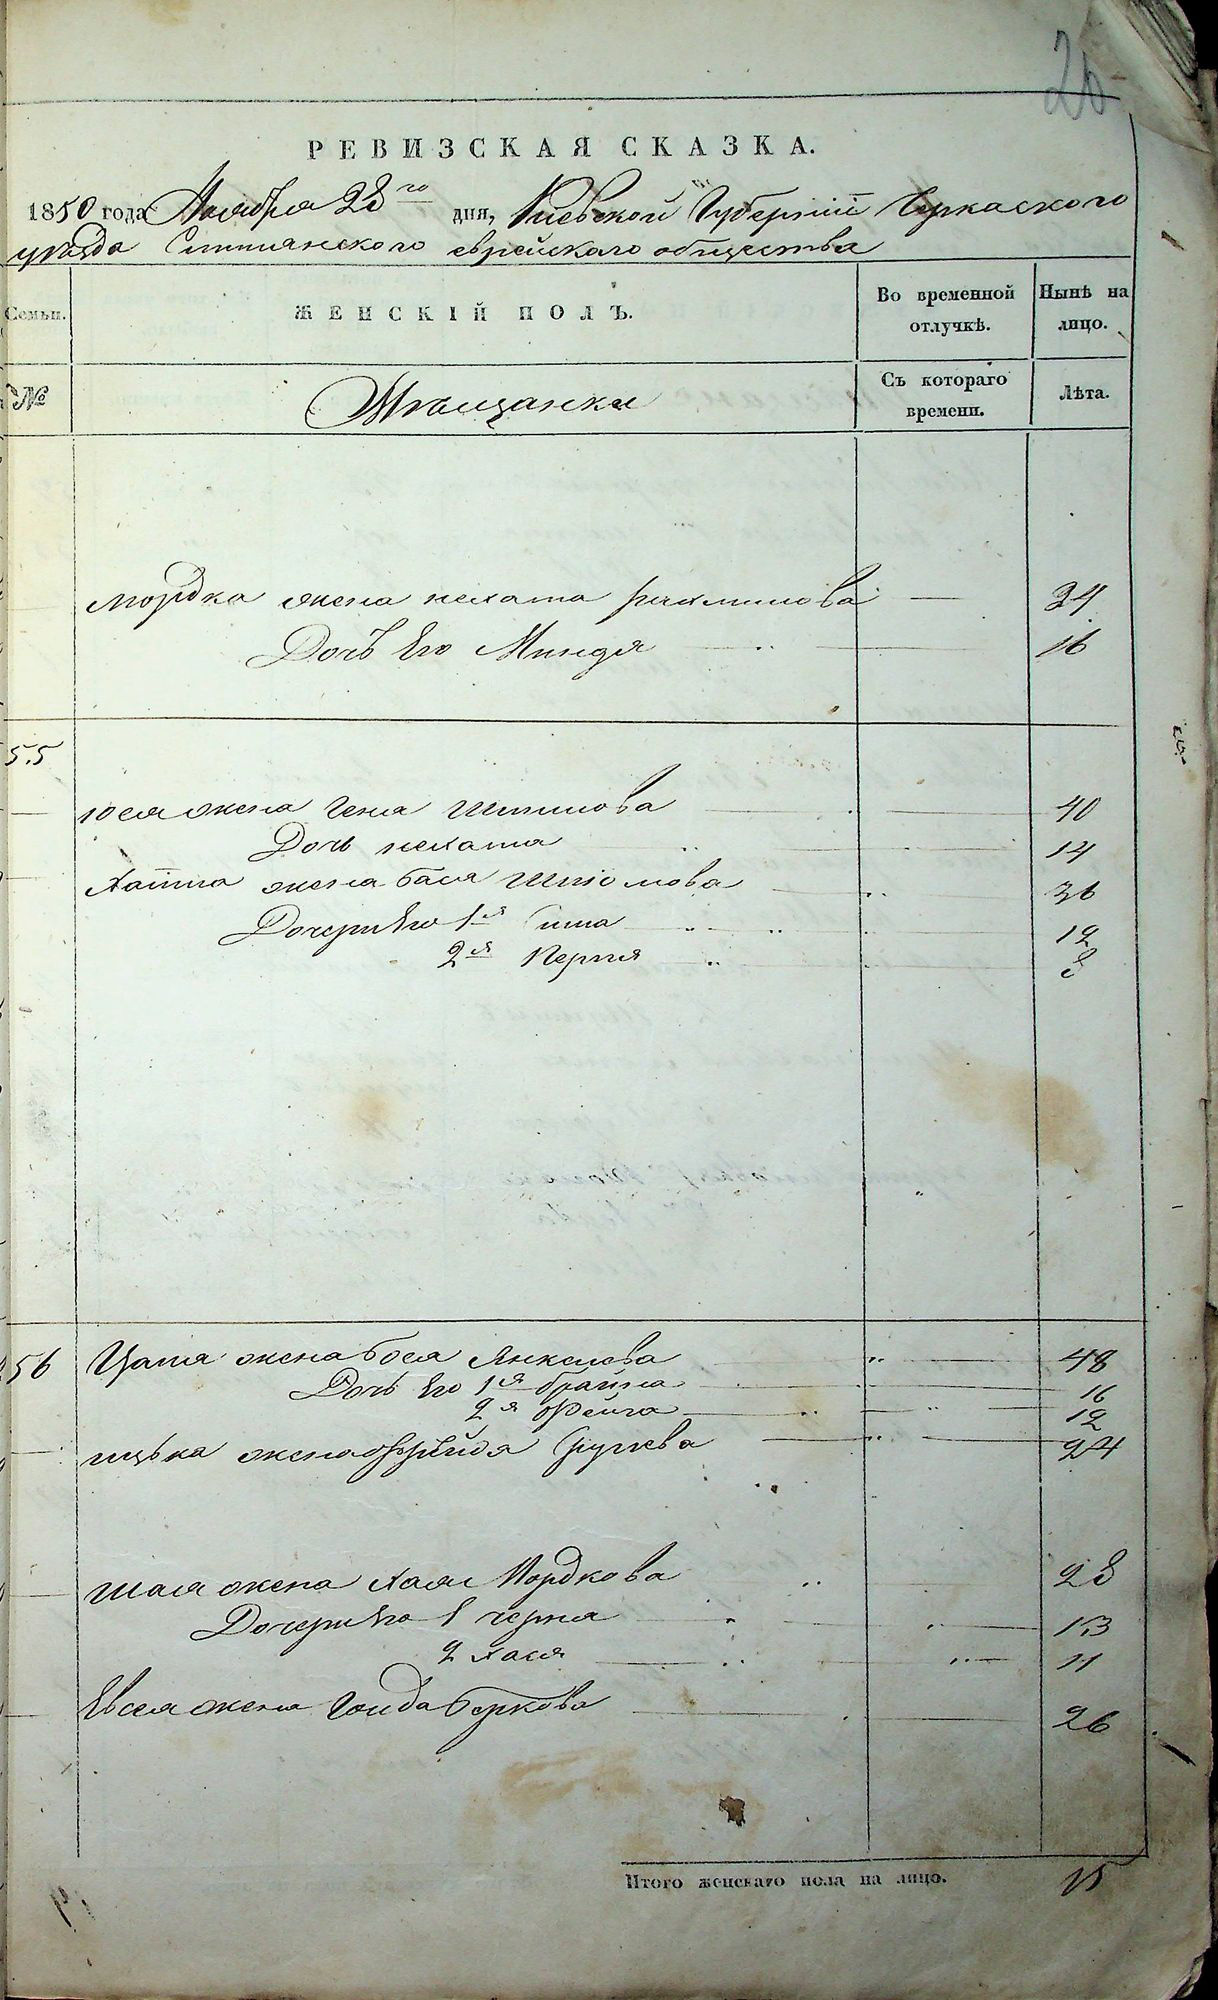 26
РЕВИЗСКАЯ СКАЗКА.
1850 года Ноября 28го дня, Киевской Губернiи Черкаского
уезда Смелянского еврейского общества
Семьи. ЖЕНСКIЙ ПОЛЪ. Во временной отлучкѣ. Нынѣ на лицо.
№ Мещанки Съ котораго времени. Лѣта.
Мордка жена нехама рахмилова — 34
Дочь Его Миндя 16
55
юся жена Геня Шмилова 40
Дочь нехама 14
жена бася Шломова 36
Дочери Его 1я 12
2я Перля 8
56 жена бося Янкелева 48
Дочь Его 1я брайна 16
2я Фейга 12
ицька жена 24
шая жена хая Мордкова 28
Дочери Его 1 черня 13
2 хася 11
Евсея жена Беркова 26
Итого женскаго пола на лицо. 15